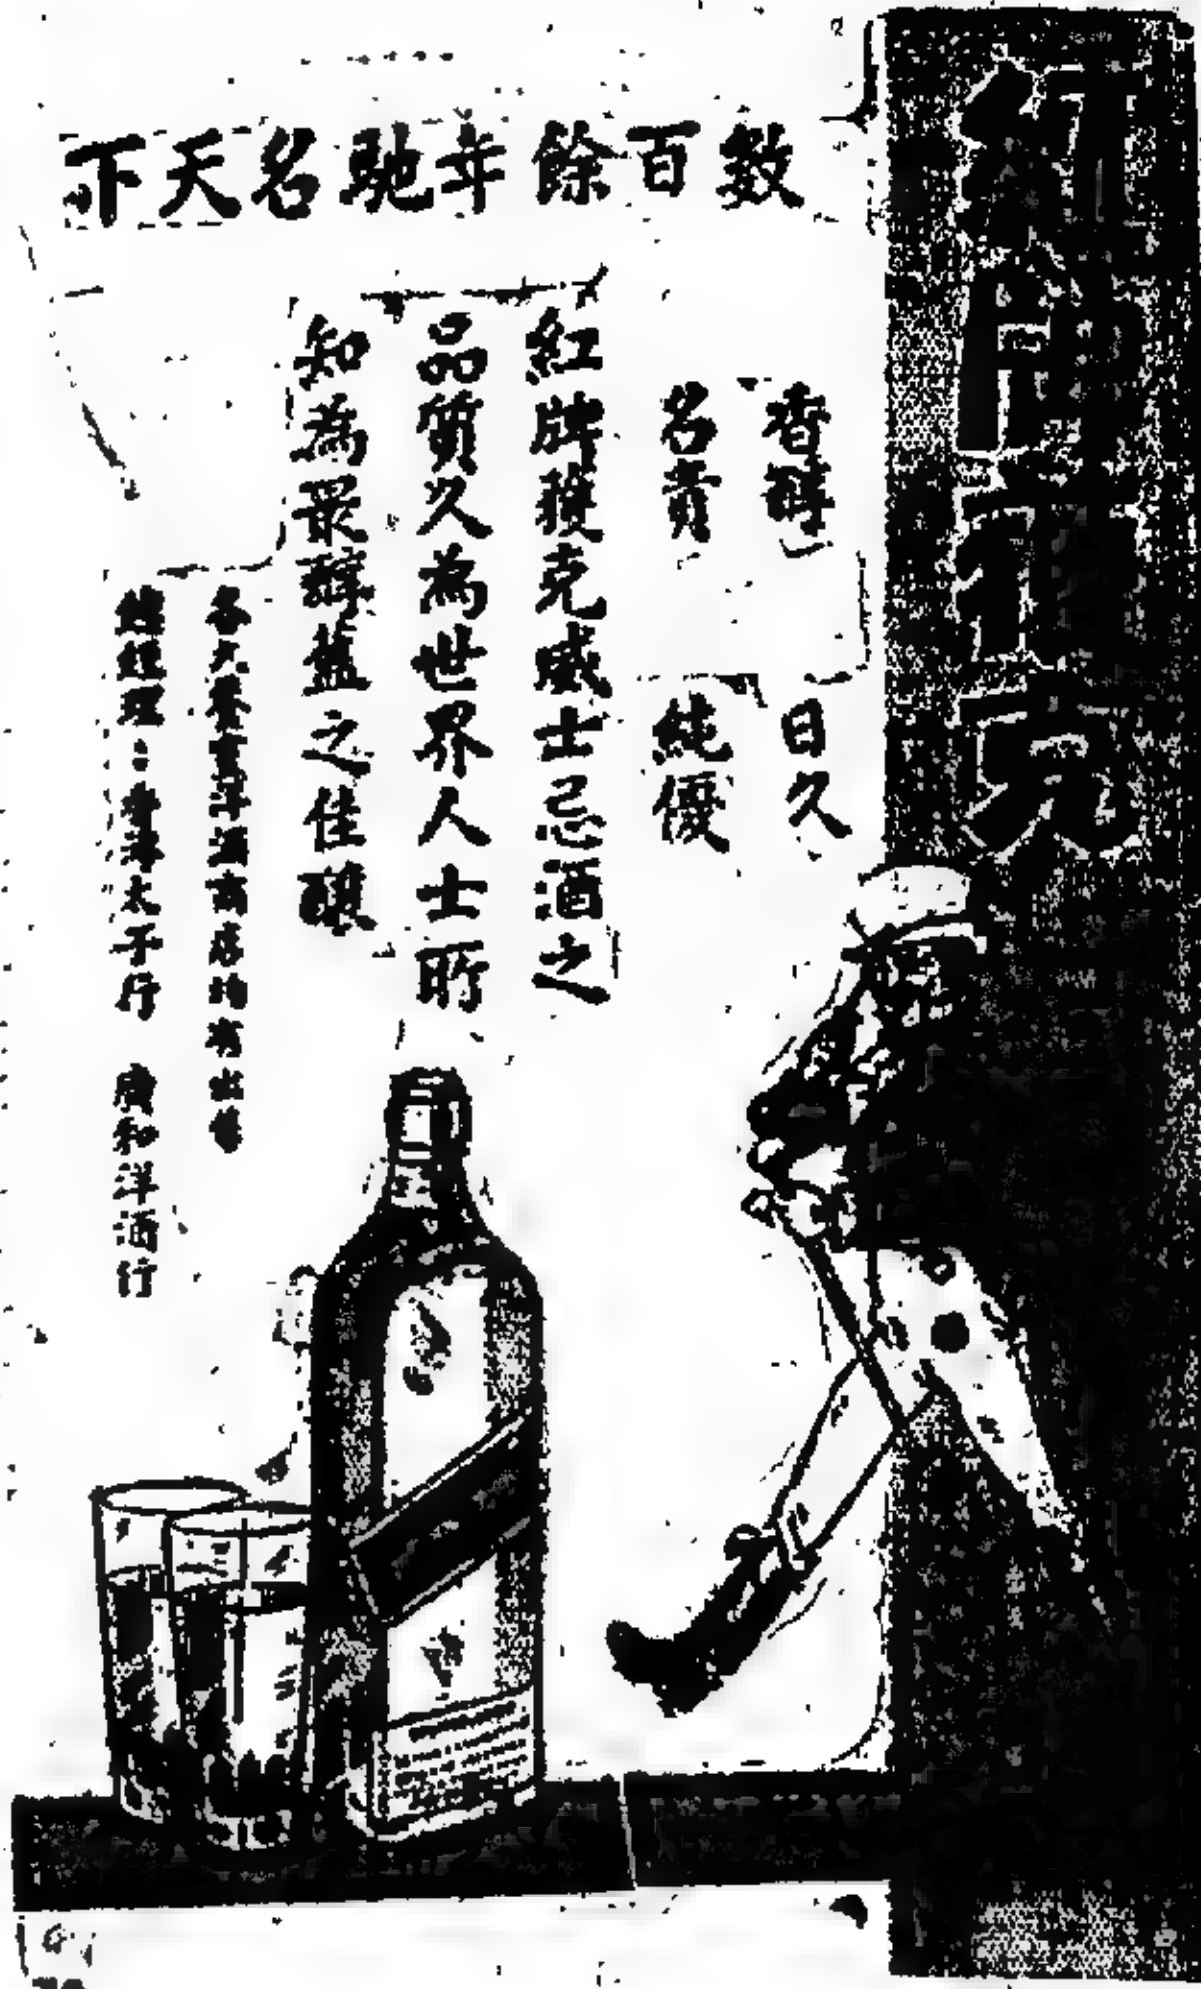 紅牌獲克
數百餘年馳名天下
香醇 日久
名貴 純優
紅牌獲克威士忌酒之
品質久為世界人士所
知為最醇益之佳釀
各大餐室洋酒商店均有出售
總經理：香港太子行 廣和洋酒行